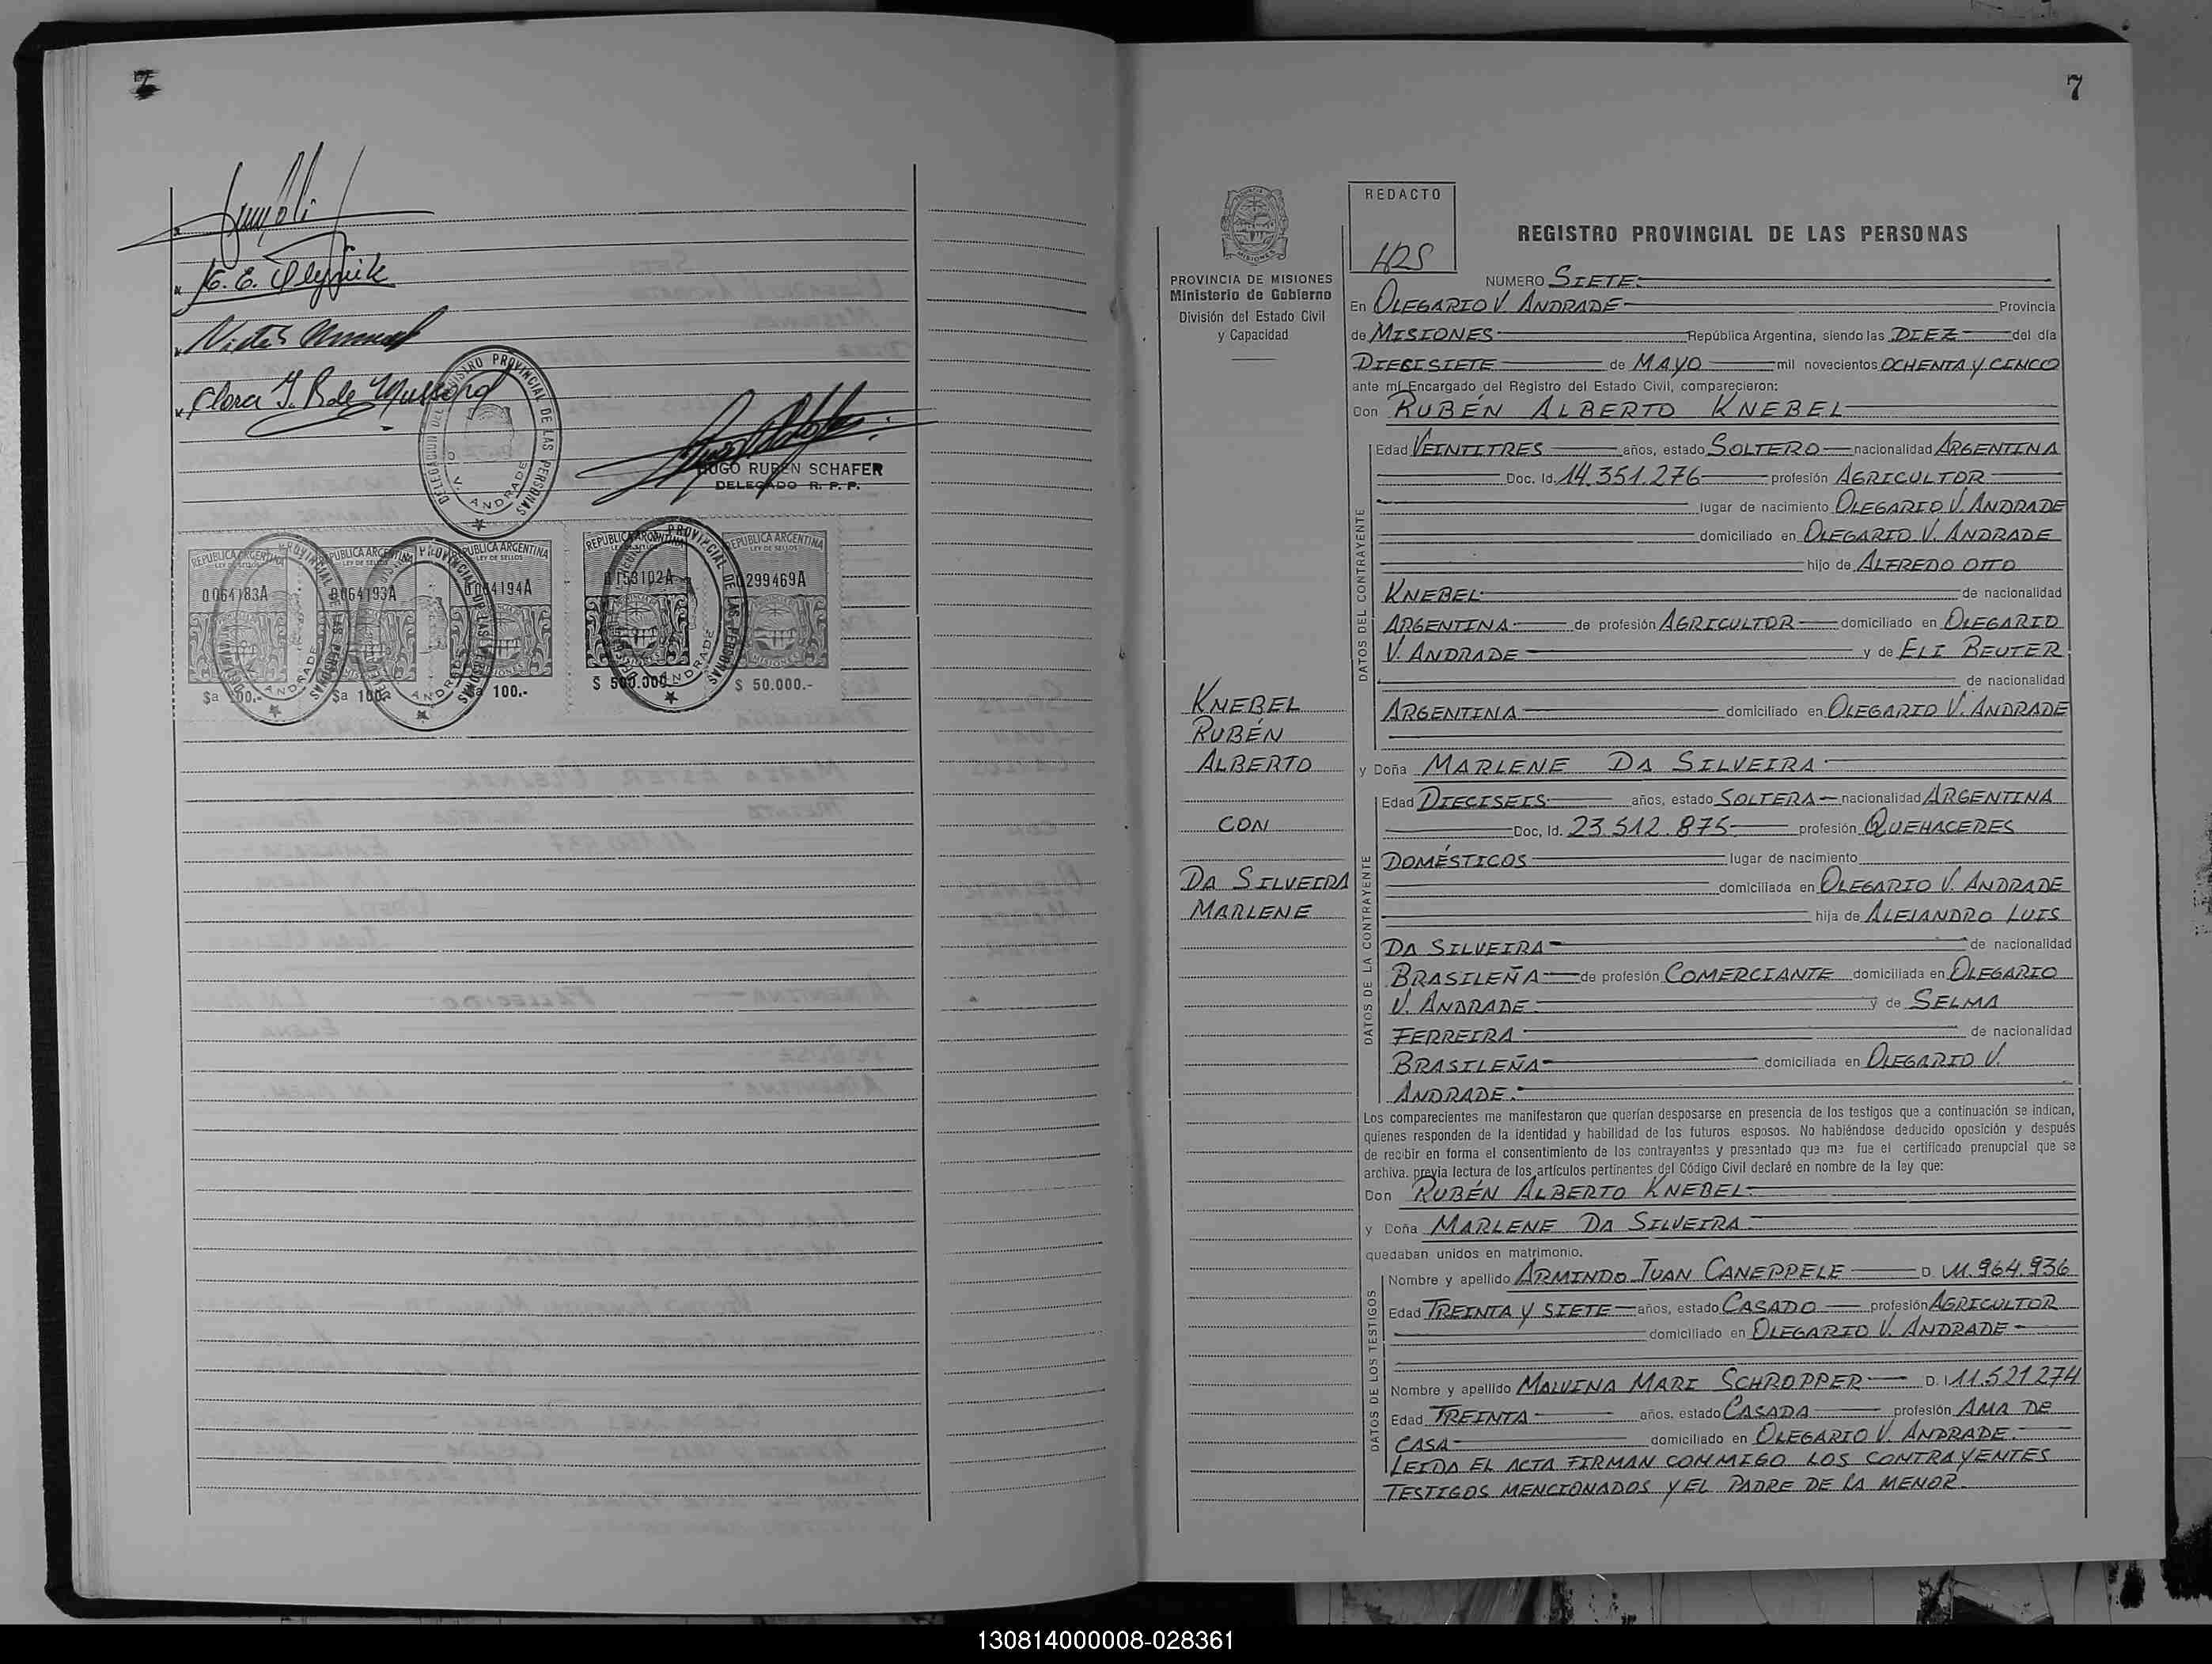 7
K. E. Oleynik
HUGO RUBEN SCHAFER
DELEGADO R. P. P.
DELEGACION DEL REGISTRO PROVINCIAL DE LAS PERSONAS
O. V. ANDRADE
REPUBLICA ARGENTINA
LEY DE SELLOS
0064183A
0064193A
0064194A
0153102A
0299469A
$a 100.-
$a 100.-
$a 100.-
$ 500.000.-
$ 50.000.-
7
REDACTO
HRS
PROVINCIA DE MISIONES
Ministerio de Gobierno
División del Estado Civil
y Capacidad
REGISTRO PROVINCIAL DE LAS PERSONAS
NUMERO SIETE
En OLEGARIO V. ANDRADE Provincia
de MISIONES República Argentina, siendo las DIEZ del día
DIECISIETE de MAYO mil novecientos OCHENTA Y CINCO
ante mí Encargado del Registro del Estado Civil, comparecieron:
Don RUBÉN ALBERTO KNEBEL
DATOS DEL CONTRAYENTE
Edad VEINTITRES años, estado SOLTERO nacionalidad ARGENTINA
Doc. Id. 14.351.276 profesión AGRICULTOR
lugar de nacimiento OLEGARIO V. ANDRADE
domiciliado en OLEGARIO V. ANDRADE
hijo de ALFREDO OTTO
KNEBEL de nacionalidad
ARGENTINA de profesión AGRICULTOR domiciliado en OLEGARIO
V. ANDRADE y de ELI BEUTER
de nacionalidad
ARGENTINA domiciliado en OLEGARIO V. ANDRADE
KNEBEL
RUBÉN
ALBERTO
CON
DA SILVEIRA
MARLENE
y Doña MARLENE DA SILVEIRA
DATOS DE LA CONTRAYENTE
Edad DIECISEIS años, estado SOLTERA nacionalidad ARGENTINA
Doc. Id. 23.512.875 profesión QUEHACERES
DOMÉSTICOS lugar de nacimiento
domiciliada en OLEGARIO V. ANDRADE
hija de ALEJANDRO LUIS
DA SILVEIRA de nacionalidad
BRASILEÑA de profesión COMERCIANTE domiciliada en OLEGARIO
V. ANDRADE y de SELMA
FERREIRA de nacionalidad
BRASILEÑA domiciliada en OLEGARIO V.
ANDRADE.
Los comparecientes me manifestaron que querían desposarse en presencia de los testigos que a continuación se indican,
quienes responden de la identidad y habilidad de los futuros esposos. No habiéndose deducido oposición y después
de recibir en forma el consentimiento de los contrayentes y presentado que me fue el certificado prenupcial que se
archiva, previa lectura de los artículos pertinentes del Código Civil declaré en nombre de la ley que:
Don RUBÉN ALBERTO KNEBEL
y Doña MARLENE DA SILVEIRA
quedaban unidos en matrimonio.
DATOS DE LOS TESTIGOS
Nombre y apellido ARMINDO JUAN CANEPPELE D. M. 964.936
Edad TREINTA Y SIETE años, estado CASADO profesión AGRICULTOR
domiciliado en OLEGARIO V. ANDRADE
Nombre y apellido MALVINA MARI SCHROPPER D. I 11.521.274
Edad TREINTA años, estado CASADA profesión AMA DE
CASA domiciliado en OLEGARIO V. ANDRADE.
LEIDA EL ACTA FIRMAN CONMIGO LOS CONTRAYENTES
TESTIGOS MENCIONADOS Y EL PADRE DE LA MENOR.
130814000008-028361